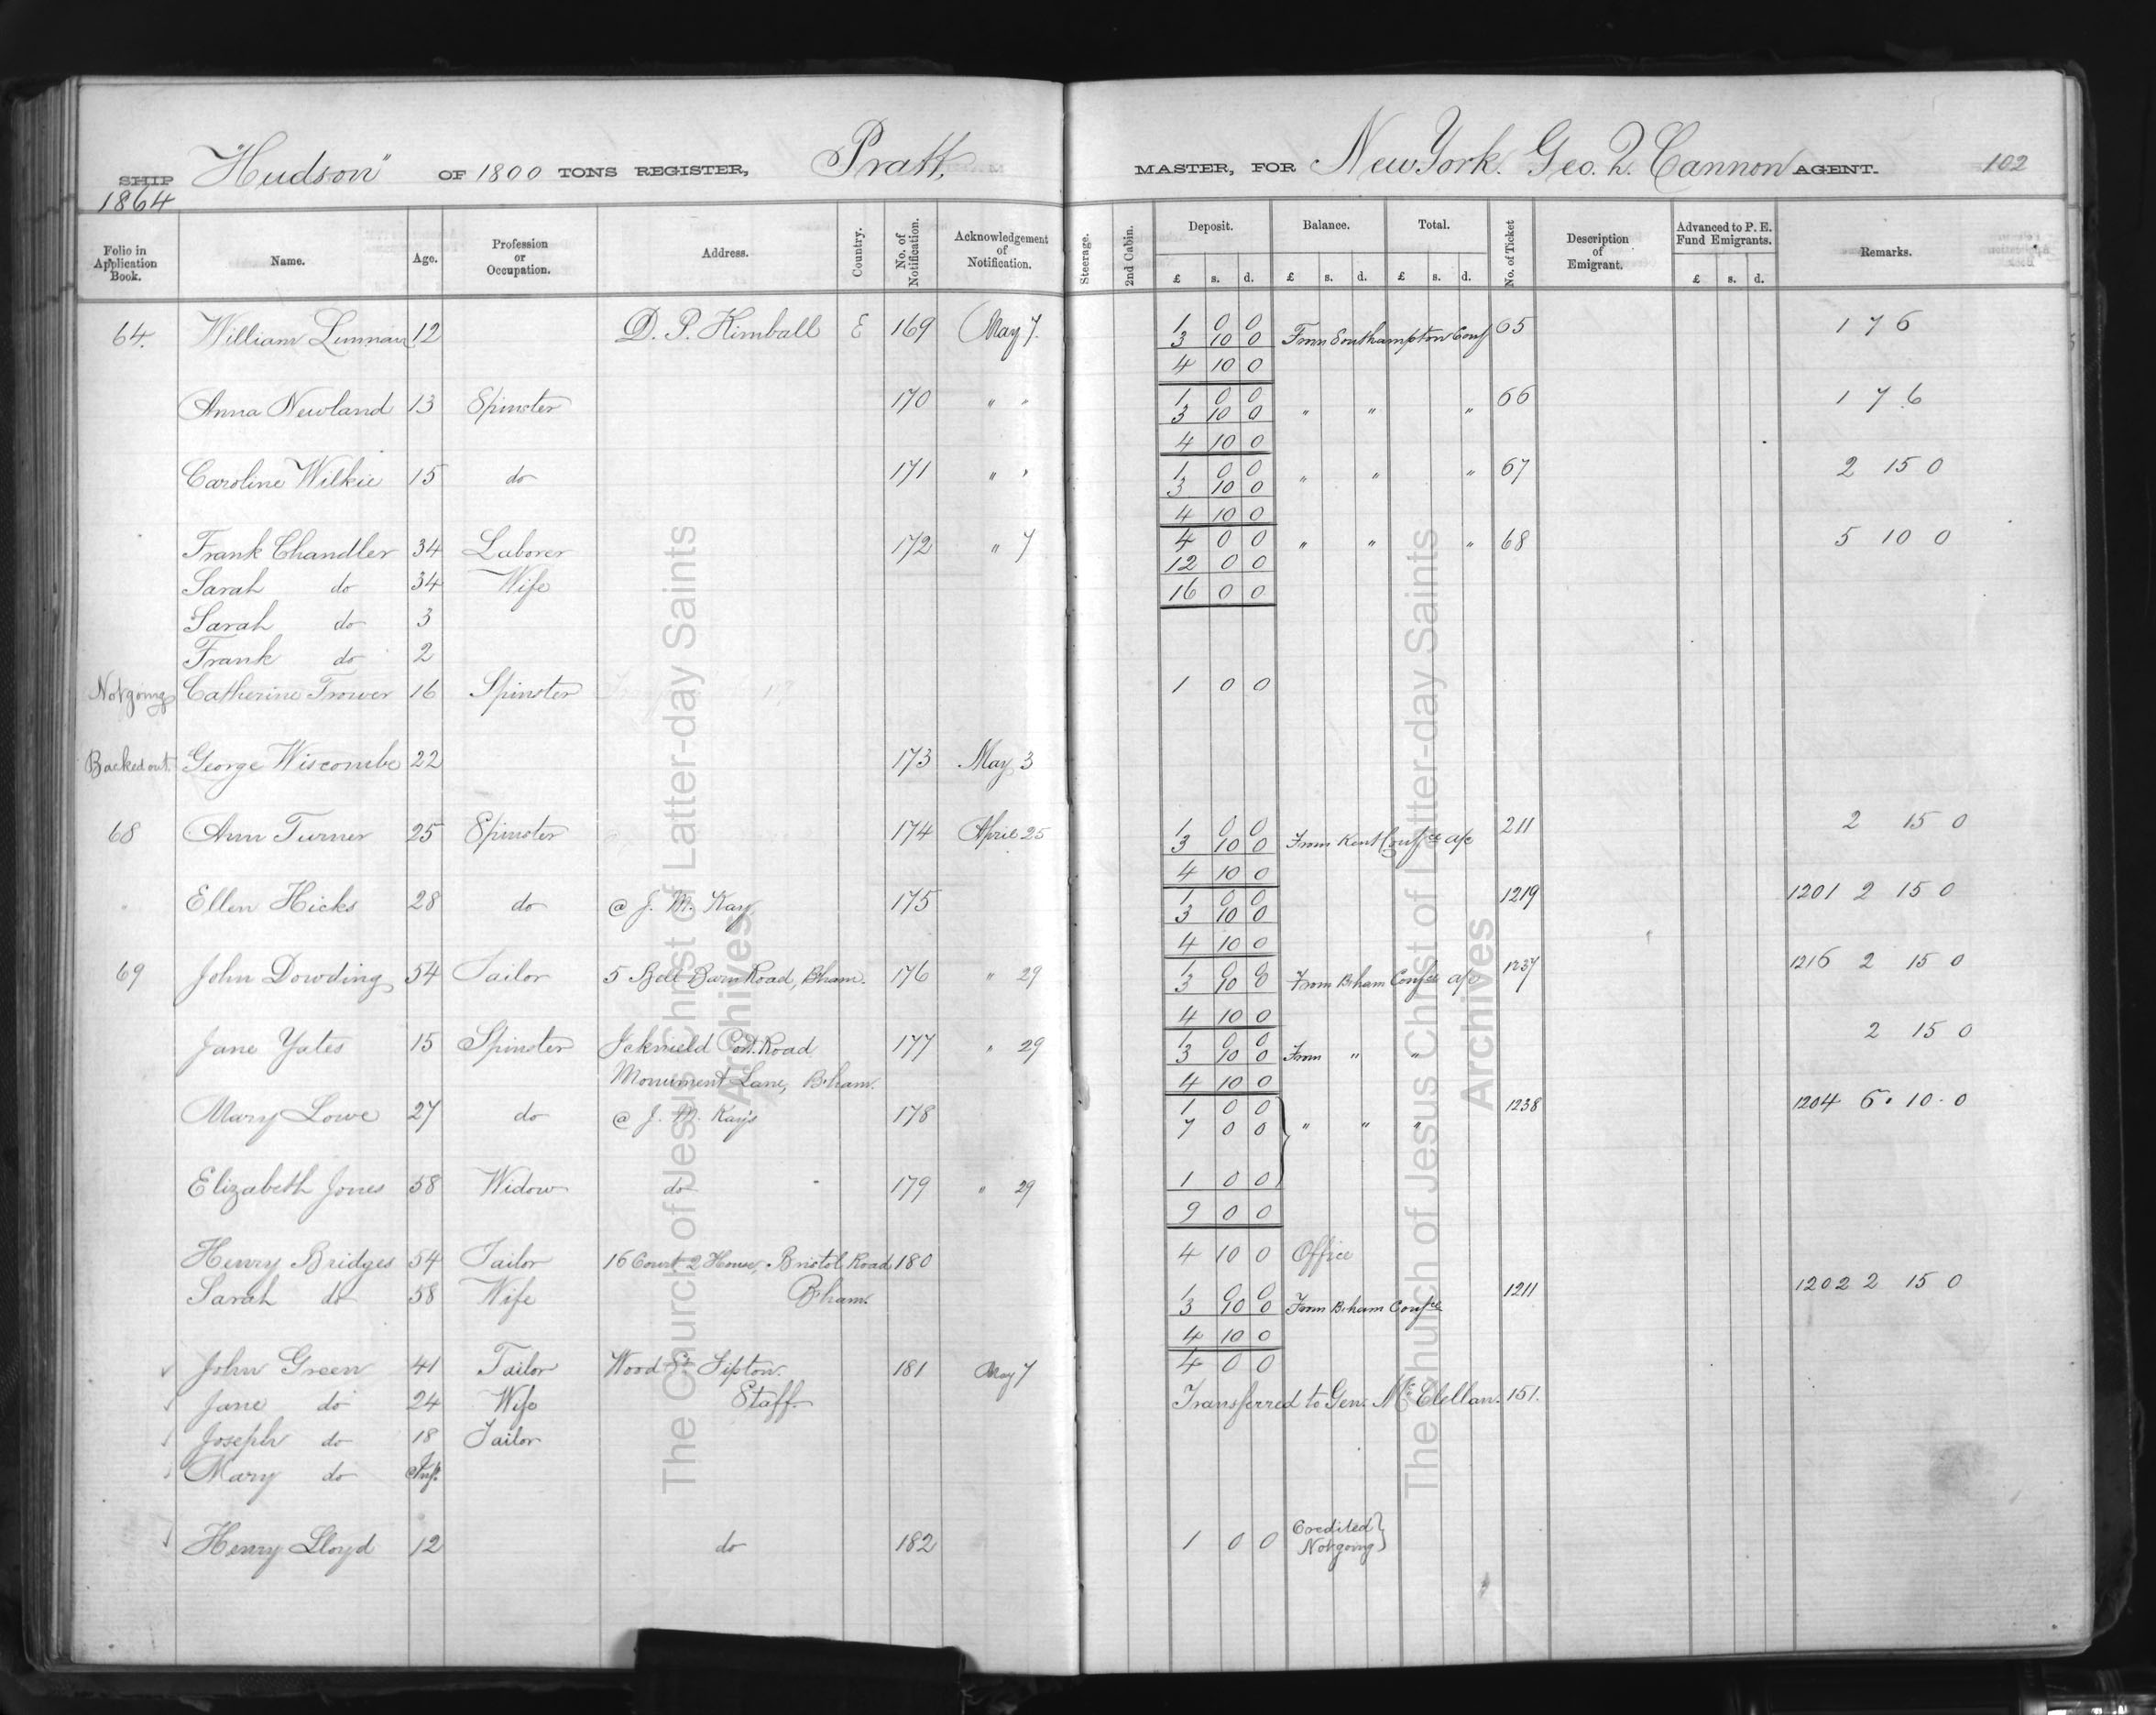 SHIP "Hudson" OF 1800 TONS REGISTER, Pratt, MASTER, FOR New York. Geo. Q. Cannon AGENT. 102
1864
Folio in Application Book. Name. Age. Profession or Occupation. Address. Country. No. of Notification. Acknowledgement of Notification. Steerage. 2nd Cabin. Deposit. Balance. Total. No. of Ticket Description of Emigrant. Advanced to P. E. Fund Emigrants. Remarks.
£ s. d. £ s. d. £ s. d. £ s. d.
64. William 12 D. P. Kimball E 169 May 7. 1 0 0 From Southampton Conf 65 1 7 6
3 10 0
4 10 0
Anna Newland 13 Spinster 170 " " 1 0 0 " " " 66 1 7 6
3 10 0
4 10 0
Caroline Wilkie 15 do 171 " " 1 0 0 " " " 67 2 15 0
3 10 0
4 10 0
Frank Chandler 34 Laborer 172 " 7 4 0 0 " " " 68 5 10 0
12 0 0
Sarah do 34 Wife 16 0 0
Sarah do 3
Frank do 2
Not going Catherine Trower 16 Spinster 1 0 0
Backed out. George Wiscombe 22 173 May 3
68 Ann Turner 25 Spinster 174 April 25 1 0 0 From Kent Confce a/c 211 2 15 0
3 10 0
4 10 0
Ellen Hicks 28 do @ J. M. Kay 175 1 0 0 1219 1201 2 15 0
3 10 0
4 10 0
69 John Dowding 54 Tailor 5 Bell Barn Road, B.ham. 176 " 29 1 0 0 From B.ham Confce a/c 1237 1216 2 15 0
3 10 0
4 10 0
Jane Yates 15 Spinster Icknield Port Road 177 " 29 1 0 0 From " " 2 15 0
3 10 0
Monument Lane, B.ham. 4 10 0
Mary Lowe 27 do @ J. M. Kay's 178 1 0 0 " " " 1238 1204 6. 10. 0
7 0 0
Elizabeth Jones 58 Widow do 179 " 29 1 0 0
9 0 0
Henry Bridges 54 Tailor 16 Court 2 House, Bristol Road 180 4 10 0 Office
Sarah do 58 Wife B.ham. 1 0 0 From B.ham Confce 1211 1202 2 15 0
3 10 0
4 10 0
John Green 41 Tailor Wood St. Tipton. 181 May 7 4 0 0
Jane do 24 Wife Staff. Transferred to Gen. Mc.Clellan. 151.
Joseph do 18 Tailor
Mary do Inf.
Henry Lloyd 12 do 182 1 0 0 Credited
Not going
The Church of Jesus Christ of Latter-day Saints
Archives
The Church of Jesus Christ of Latter-day Saints
Archives